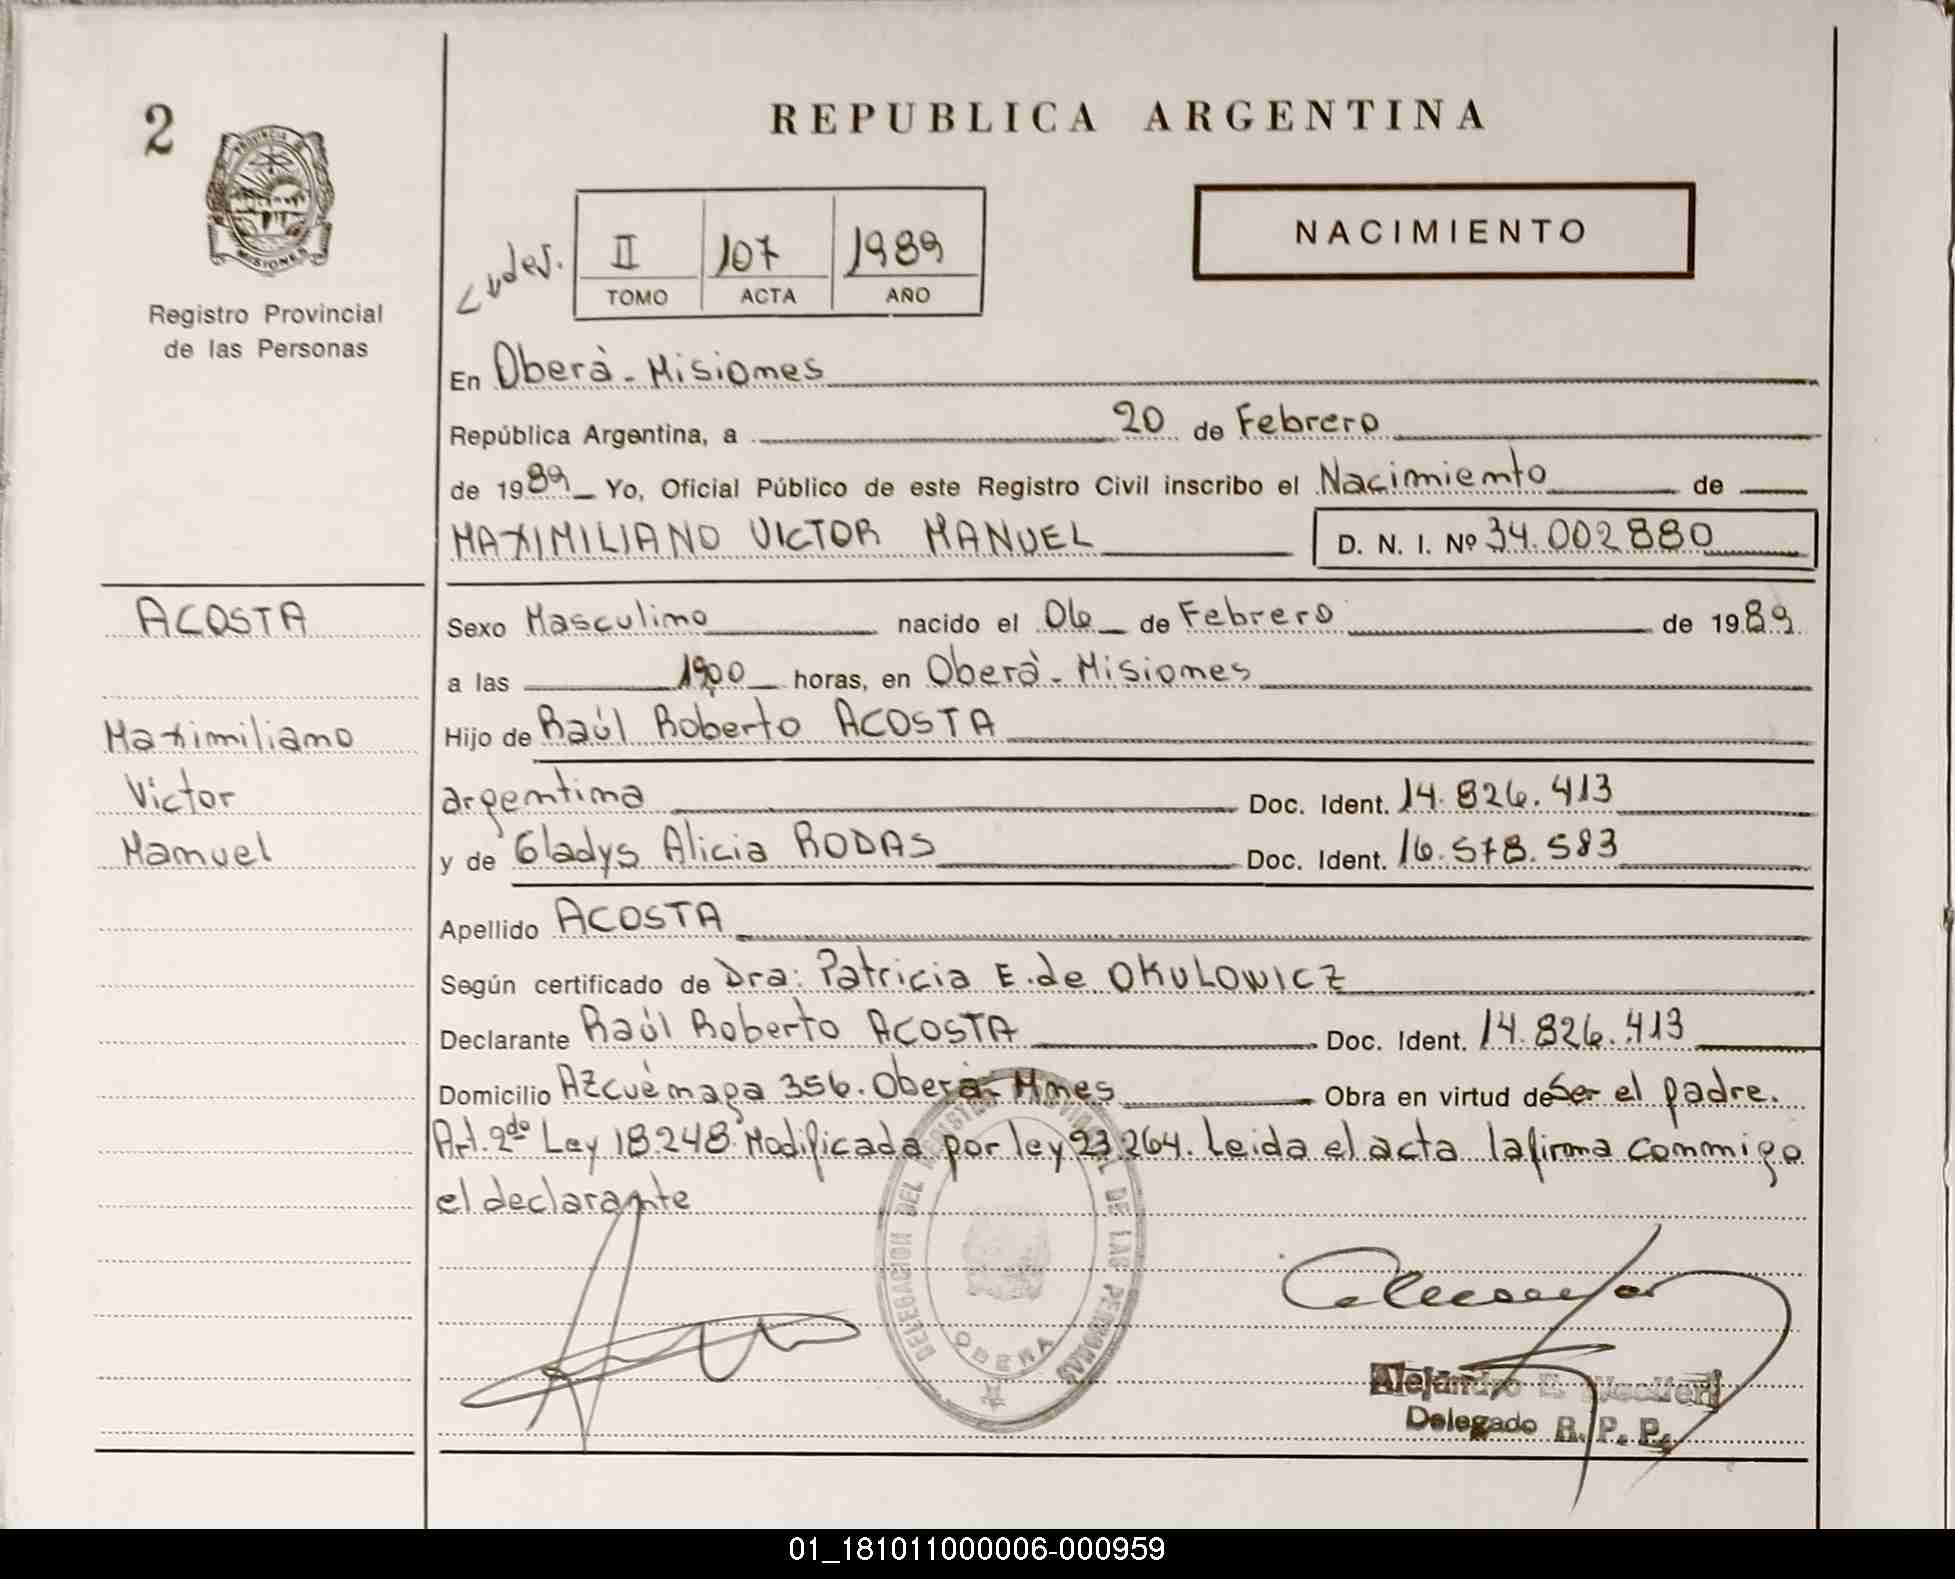 2
PROVINCIA DE
MISIONES
Registro Provincial
de las Personas
REPUBLICA ARGENTINA
NACIMIENTO
II 107 1989
TOMO ACTA AÑO
En Oberà - Misiones
República Argentina, a 20 de Febrero
de 1989 Yo, Oficial Público de este Registro Civil inscribo el Nacimiento de
MAXIMILIANO VICTOR MANUEL D. N. I. Nº 34.002.880
ACOSTA
Maximiliano
Victor
Manuel
Sexo Masculino nacido el 06 de Febrero de 1989
a las 19,00 horas, en Oberà - Misiones
Hijo de Raúl Roberto ACOSTA
argentina Doc. Ident. 14.826.413
y de Gladys Alicia RODAS Doc. Ident. 16.578.583
Apellido ACOSTA
Según certificado de Dra: Patricia E. de OKULOWICZ
Declarante Raúl Roberto ACOSTA Doc. Ident. 14.826.413
Domicilio Azcuénaga 356. Oberà - Mnes Obra en virtud de Ser el padre.
Art. 2do Ley 18.248 Modificada por ley 23.264. Leida el acta la firma conmigo
el declarante
DELEGACION DEL REGISTRO PROVINCIAL DE LAS PERSONAS
OBERA
Alejandro E.
Delegado R. P. P.
01_181011000006-000959